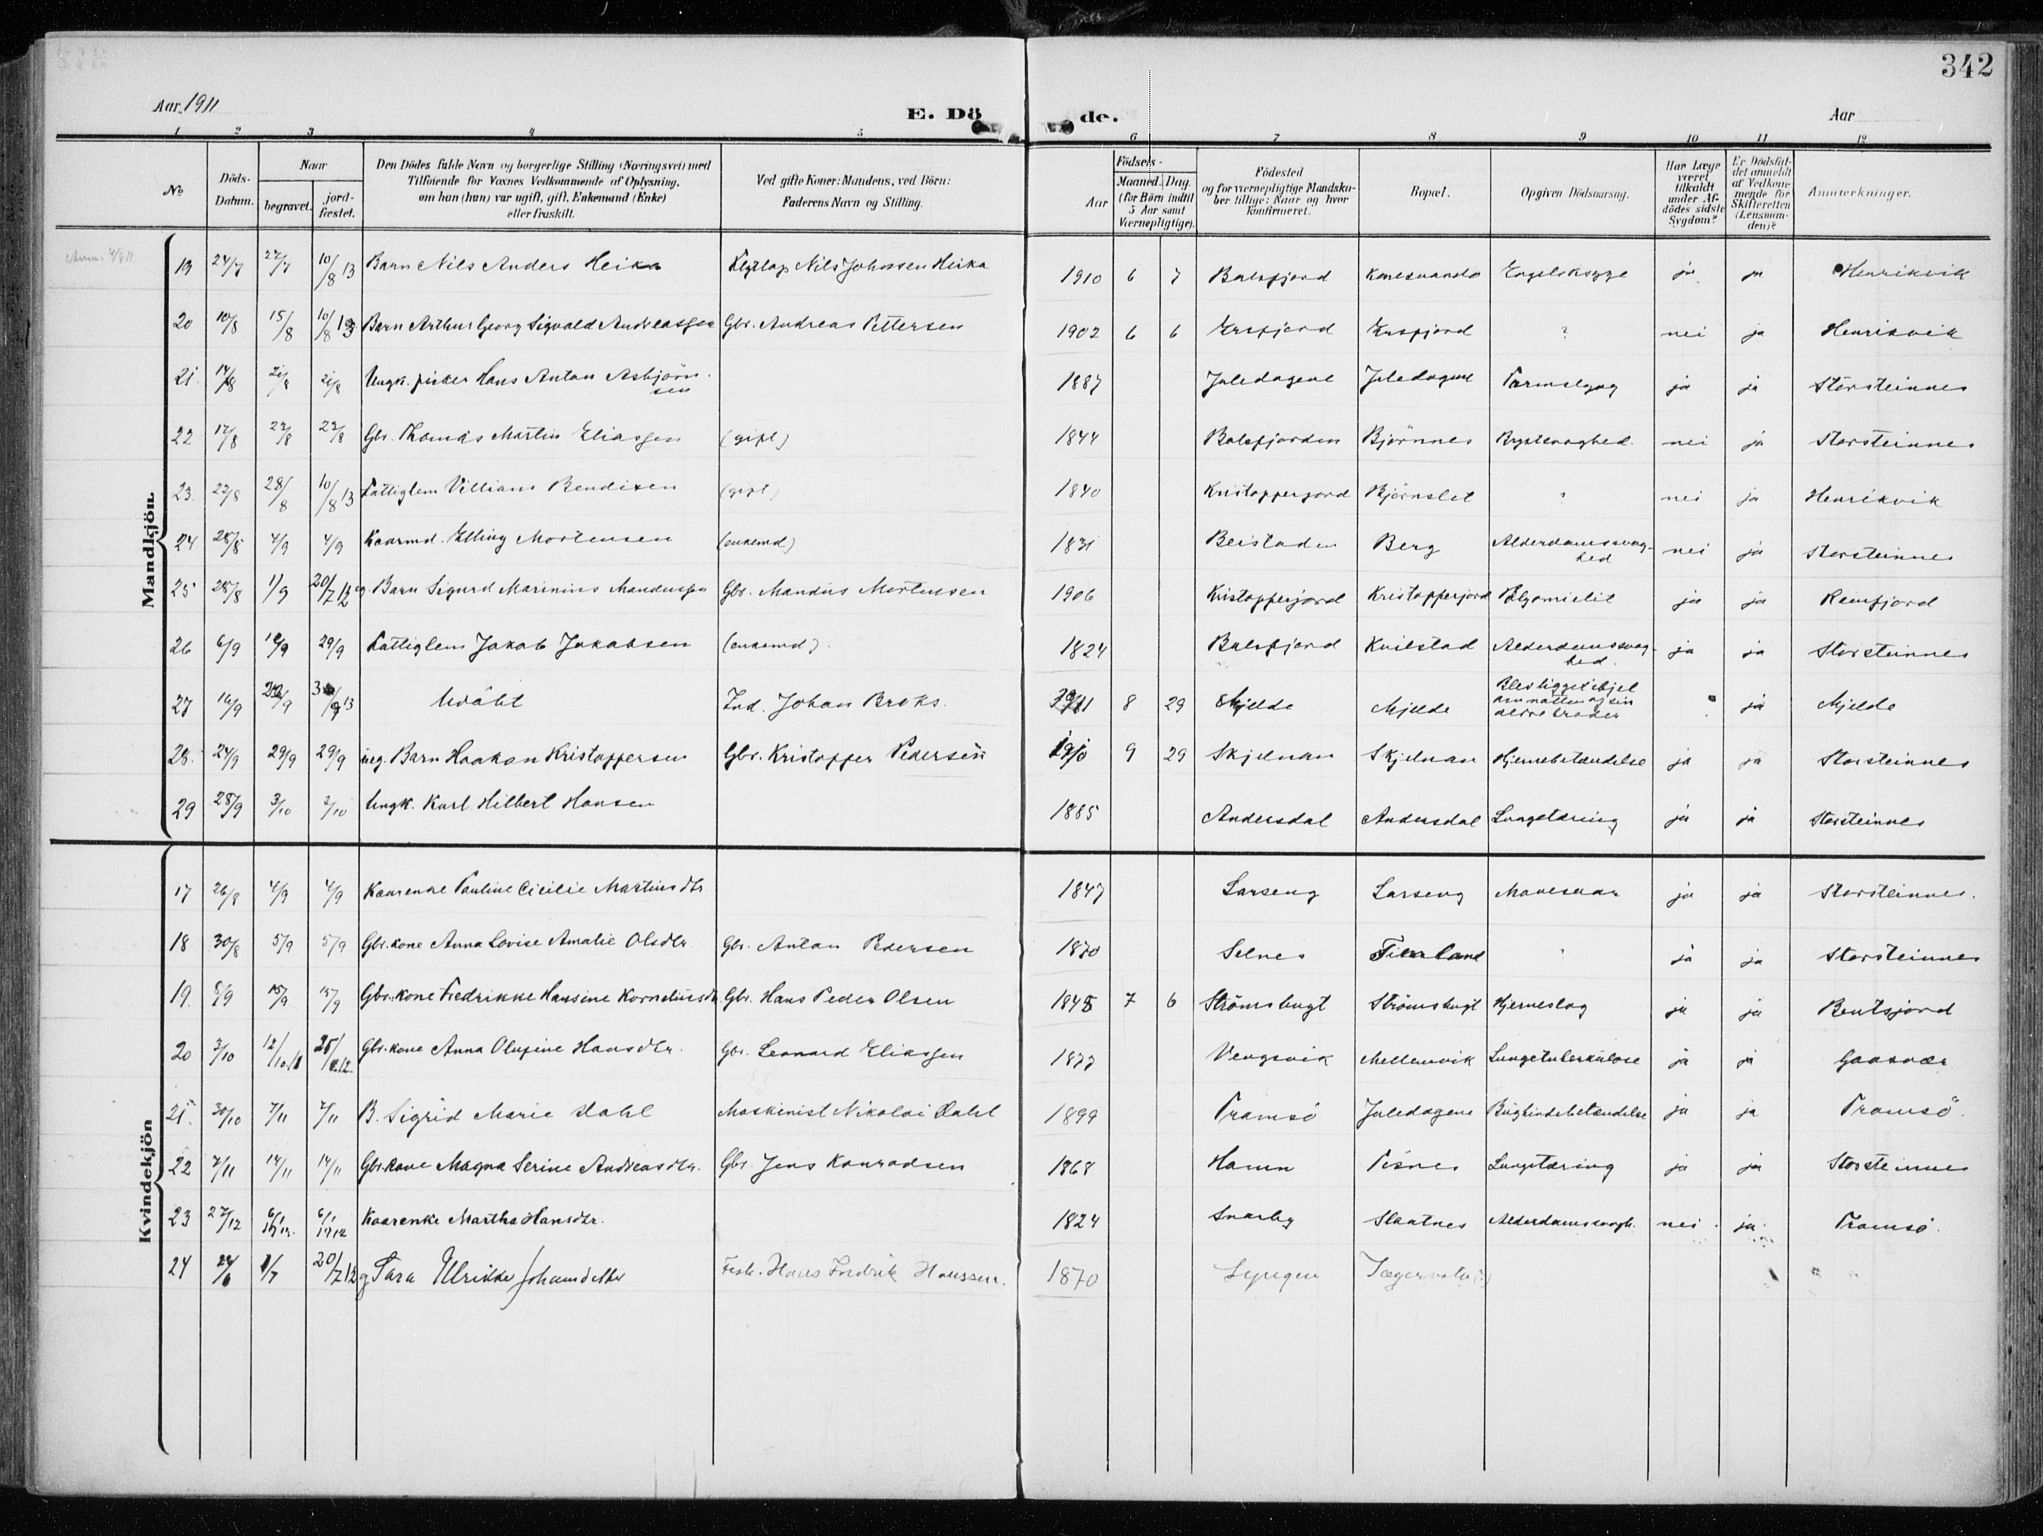 342
Aar 1911
E. Dö de.
Aar
1 2 3 4 5 6 7 8 9 10 11 12
No
Döds-Datum.
Naar
begravet.
jord-fæstet.
Den Dödes fulde Navn og borgerlige Stilling (Næringsvei) med
Tilföiende for Voxnes Vedkommende af Oplysning,
om han (hun) var ugift, gift, Enkemand (Enke)
eller fraskilt.
Ved gifte Koner: Mandens, ved Börn:
Faderens Navn og Stilling.
Födsels-
Aar
Maaned. Dag.
(for Börn indtil
5 Aar samt
Værnepligtige).
Födested
og for værnepligtige Mandska-
ber tillige: Naar og hvor
konfirmeret.
Bopæl.
Opgiven Dödsaarsag.
Har Læge
været
tilkaldt
under Af-
dödes sidste
Sygdom?
Er Dödsfal-
det anmeldt
af Vedkom-
mende for
Skifteretten
(Lensman-
den)?
Anmerkninger.
Mandkjön.
19 24/7 27/7 10/8 13 Barn Nils Anders Heika Nils Johnsen Heika 1910 6 7 Balsfjord Engelsksyge ja ja Henrikvik
20 10/8 15/8 10/8 13 Barn Arthur Georg Sigvald Andreassen Gbr. Andreas Pettersen 1902 6 6 Ersfjord Ersfjord ? nei ja Henrikvik
21. 21/8 21/8 Ungk. fisker Hans Anton Asbjörn-
sen 1887 ja ja Storsteinnes
22 17/8 22/8 22/8 Gbr. Thomas Martin Eliassen (gift) 1844 Balsfjorden Björnnes Brystsvaghed. nei ja Storsteinnes
23. 22/8 28/8 10/8 13 Fattiglem Villians Bendixen (gift) 1840 nei ja Henrikvik
24 28/8 4/9 4/9 Kaarmd. Elling Mortensen (enkemd) 1831 Beistaden Berg Alderdomssvag-
hed nei ja Storsteinnes
25 28/8 1/9 20/7 12 Barn Sigurd Marinius Mandussen Gbr. Mandus Mortensen 1906 ja ja
26 6/9 29/9 Fattiglem Jakob Jakobsen (enkemd). 1824 Balsfjord Kvilstad Alderdomssvag-
hed ja ja Storsteinnes
27 16/9 13 Udöbt Ind. Johan Broks. 8 29 Mjelde Mjelde
Blev ligget ihjel
om natten af sin
ældre broder ja Mjelde
28. 24/9 29/9 29/9 Barn Haakon Kristoffersen Gbr. Kristoffer Pedersen 1910 9 29 Skjelnan Skjelnan Hjernebetændelse ja ja Storsteinnes
29 28/9 3/10 3/10 Ungk. Karl Hilbert Hansen 1885 Andersdal Andersdal Lungetæring ja ja Storsteinnes
Kvindekjön
17 26/8 4/9 4/9 Kaarenke Pauline Cicilie Martinsdtr 1847 Larseng Larseng Mavesaar ja ja Storsteinnes.
18 30/8 5/9 5/9 Gbr. kone Anna Lovise Amalie Olsdtr Gbr. Anton Pedersen 1870 Selnes ja ja Storsteinnes
19. 8/9 15/9 15/9 Gbr. kone Fredrikke Hansine Korneliusdtr Gbr. Hans Peder Olsen 1848 7 6 Strömsbugt Strömsbugt Hjerneslag ja ja Bentsjord
20 3/10 Gbr. kone Anna Olufine Hansdtr. Gbr. Leonard Eliassen 1877 Vengsvik Mellemvik Lungetuberkulose ja ja Gaasvær
21. 30/10 7/11 7/11 B. Sigrid Marie Dahl Maskinist Nikolai Dahl 1899 Tromsö ja ja Tromsö.
22 7/11 14/11 14/11 Gbr. kone Magna Serine Andreasdtr. Gbr. Jens Konradsen 1868 Hamn Tisnes Lungetæring ja ja Storsteinnes
23 27/12 Kaarenke Martha Hansdtr. 1824 Svarby Slaatnes Alderdomssvagh. nei ja Tromsö.
24 1/7 20/7 12 Sara Ulrikke Johansdatter Hans Fredrik Hanssen. 1870 Lyngen